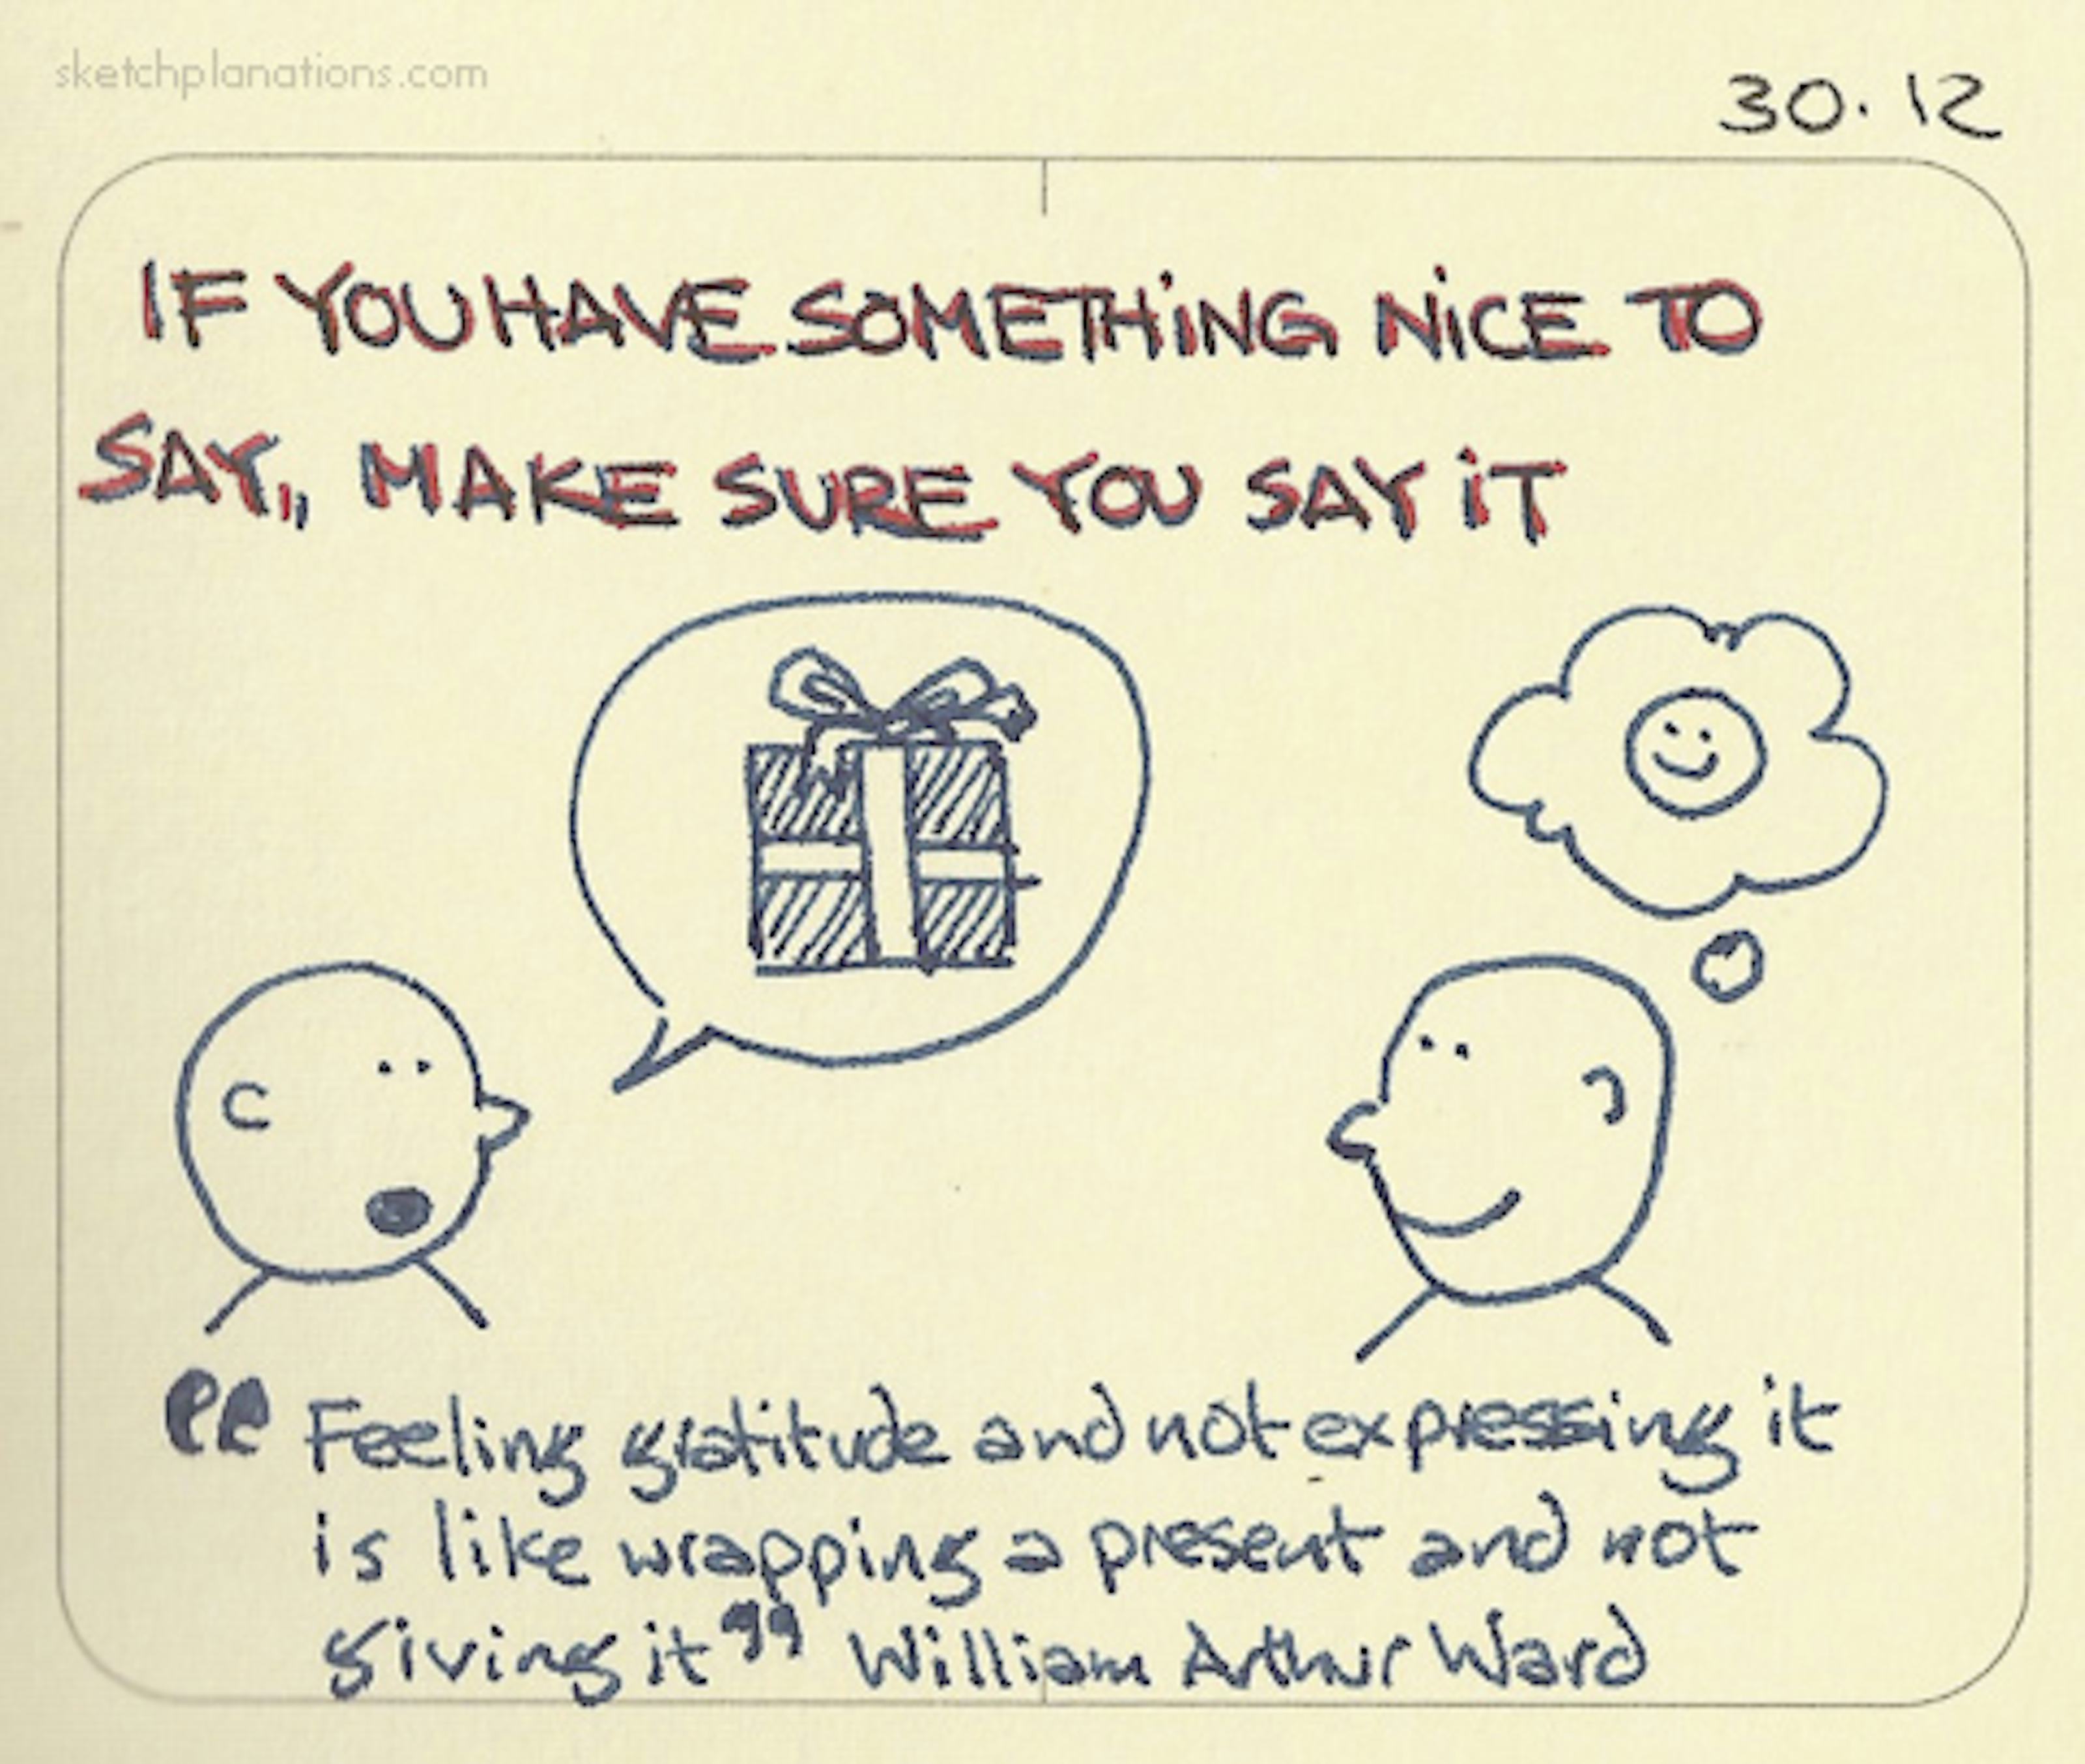 sketchplanations.com
30.12
IF YOU HAVE SOMETHING NiCE TO
SAY,, MAKE SURE YOU SAY iT
“Feeling gratitude and not expressing it
is like wrapping a present and not
giving it” William Arthur Ward